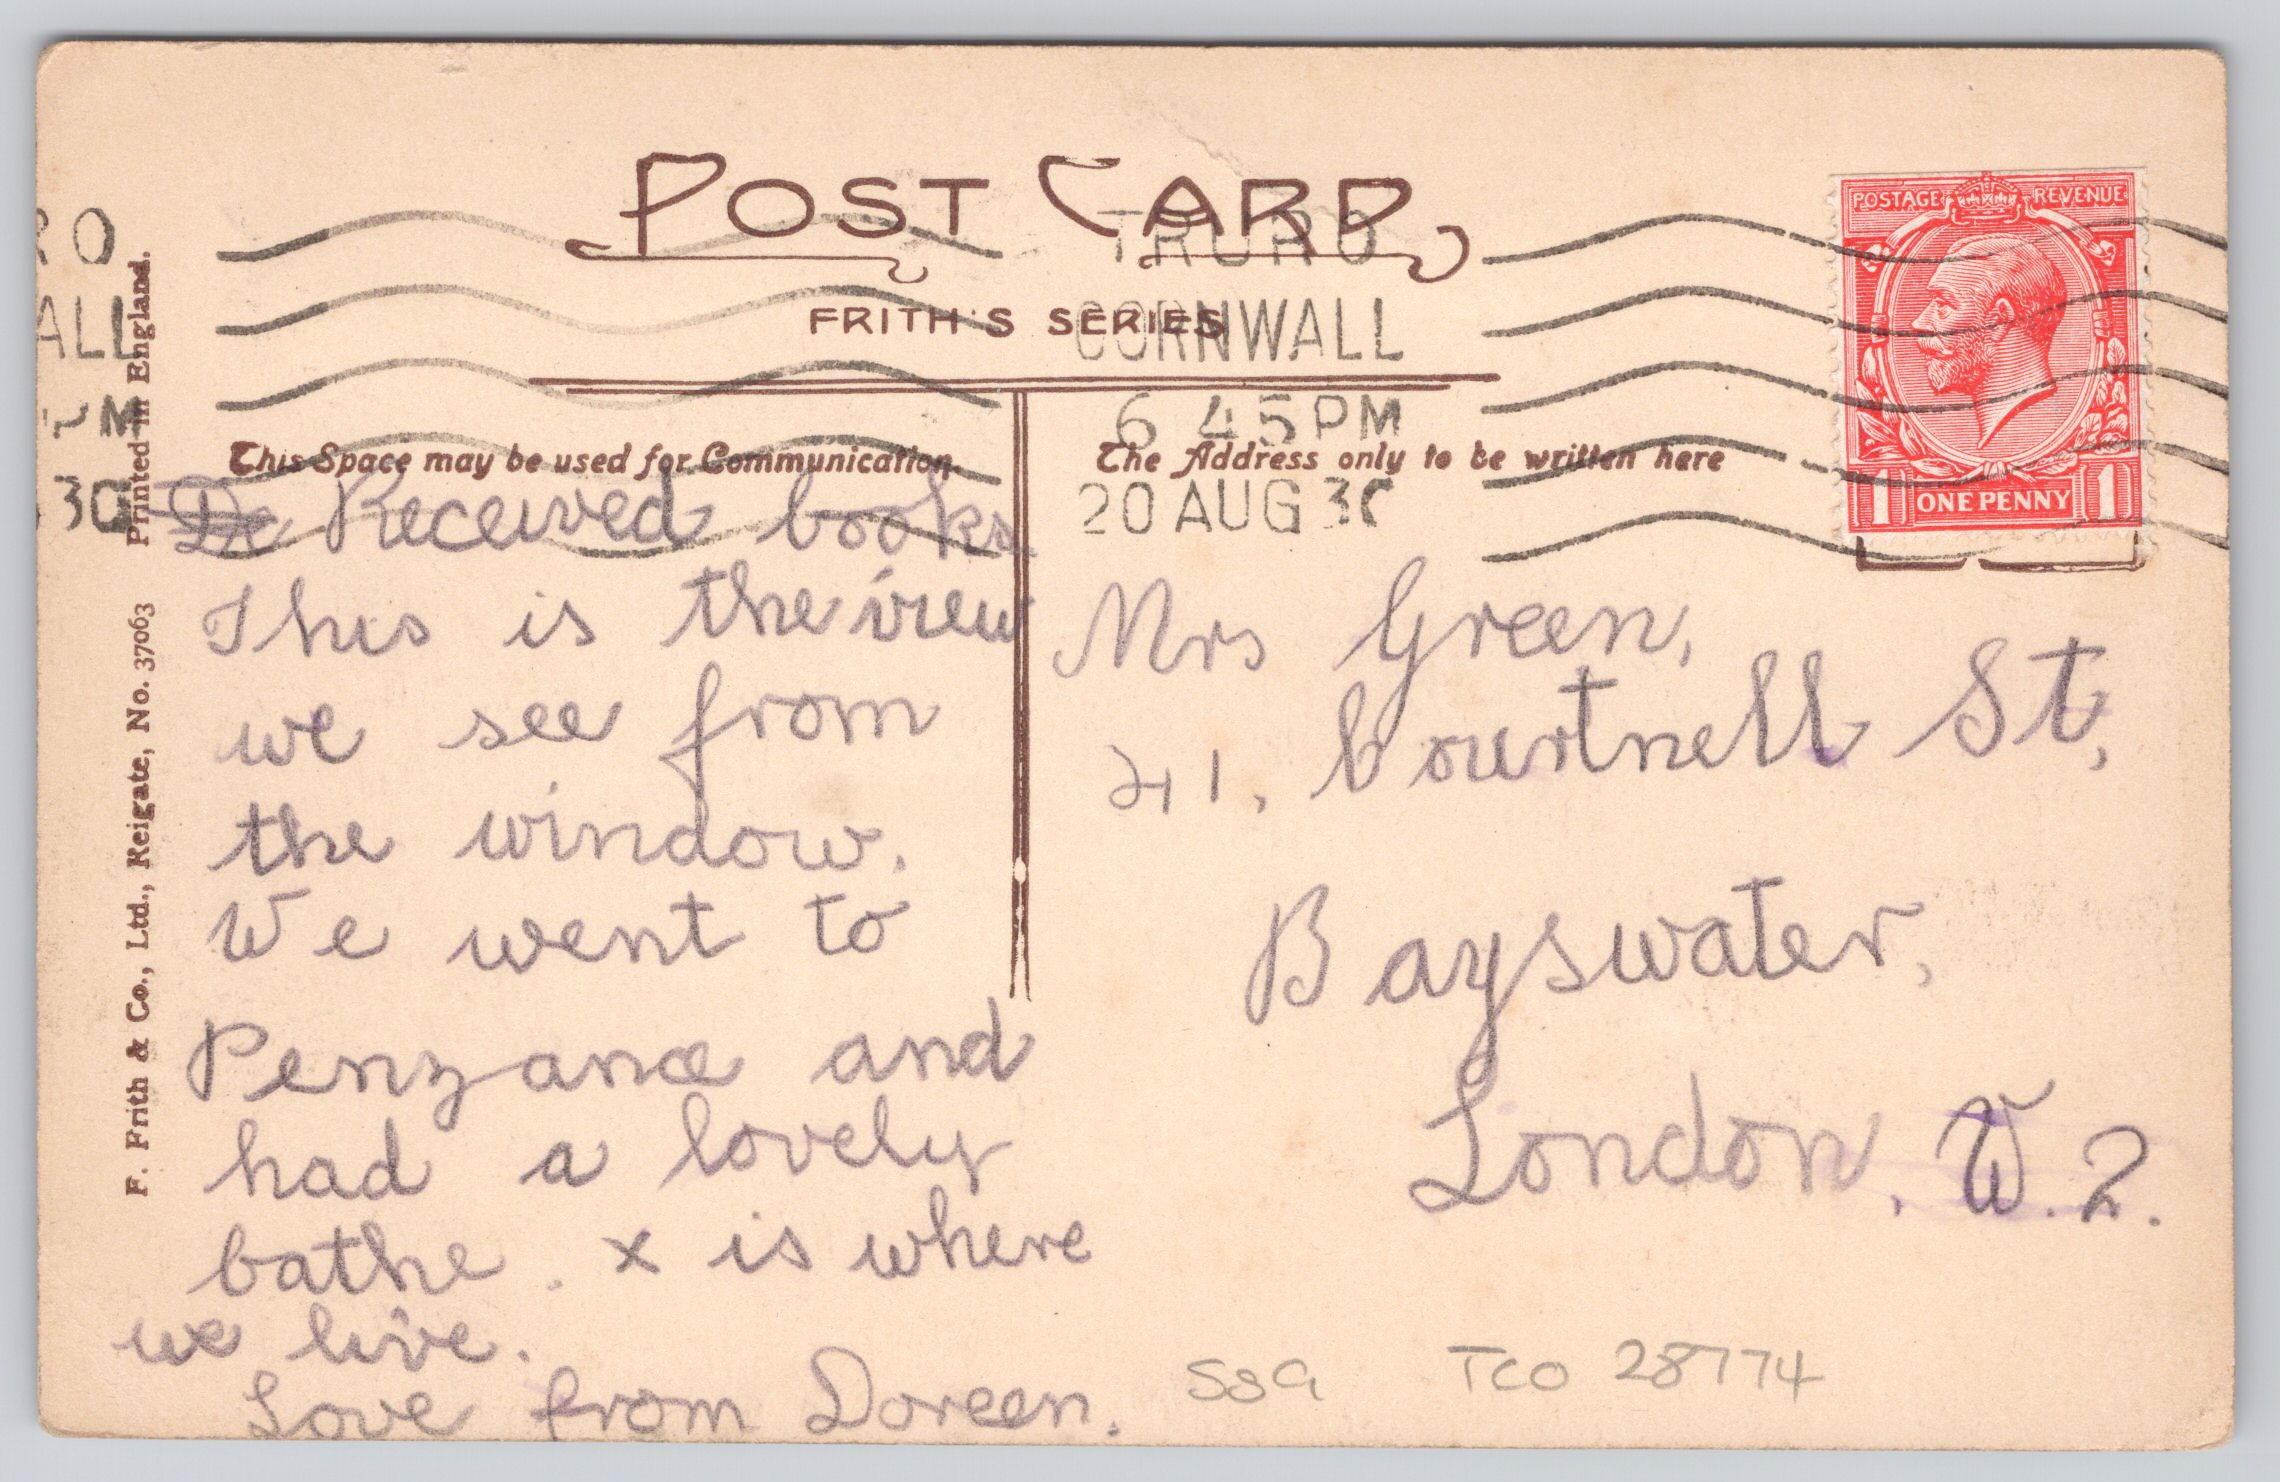 POST CARD
FRITH'S SERIES
RO
ALL
PM
30
TRURO
CORNWALL
6 45 PM
20 AUG 30
POSTAGE REVENUE
1 ONE PENNY 1
This Space may be used for Communication.
The Address only to be written here
F. Frith & Co., Ltd., Reigate, No. 37063 Printed in England.
De Received books.
This is the view
we see from
the window.
We went to
Penzance and
had a lovely
bathe. x is where
we live.
Love from Doreen.
Mrs Green,
41, Courtnell St,
Bayswater,
London, W.2.
TCO 28774